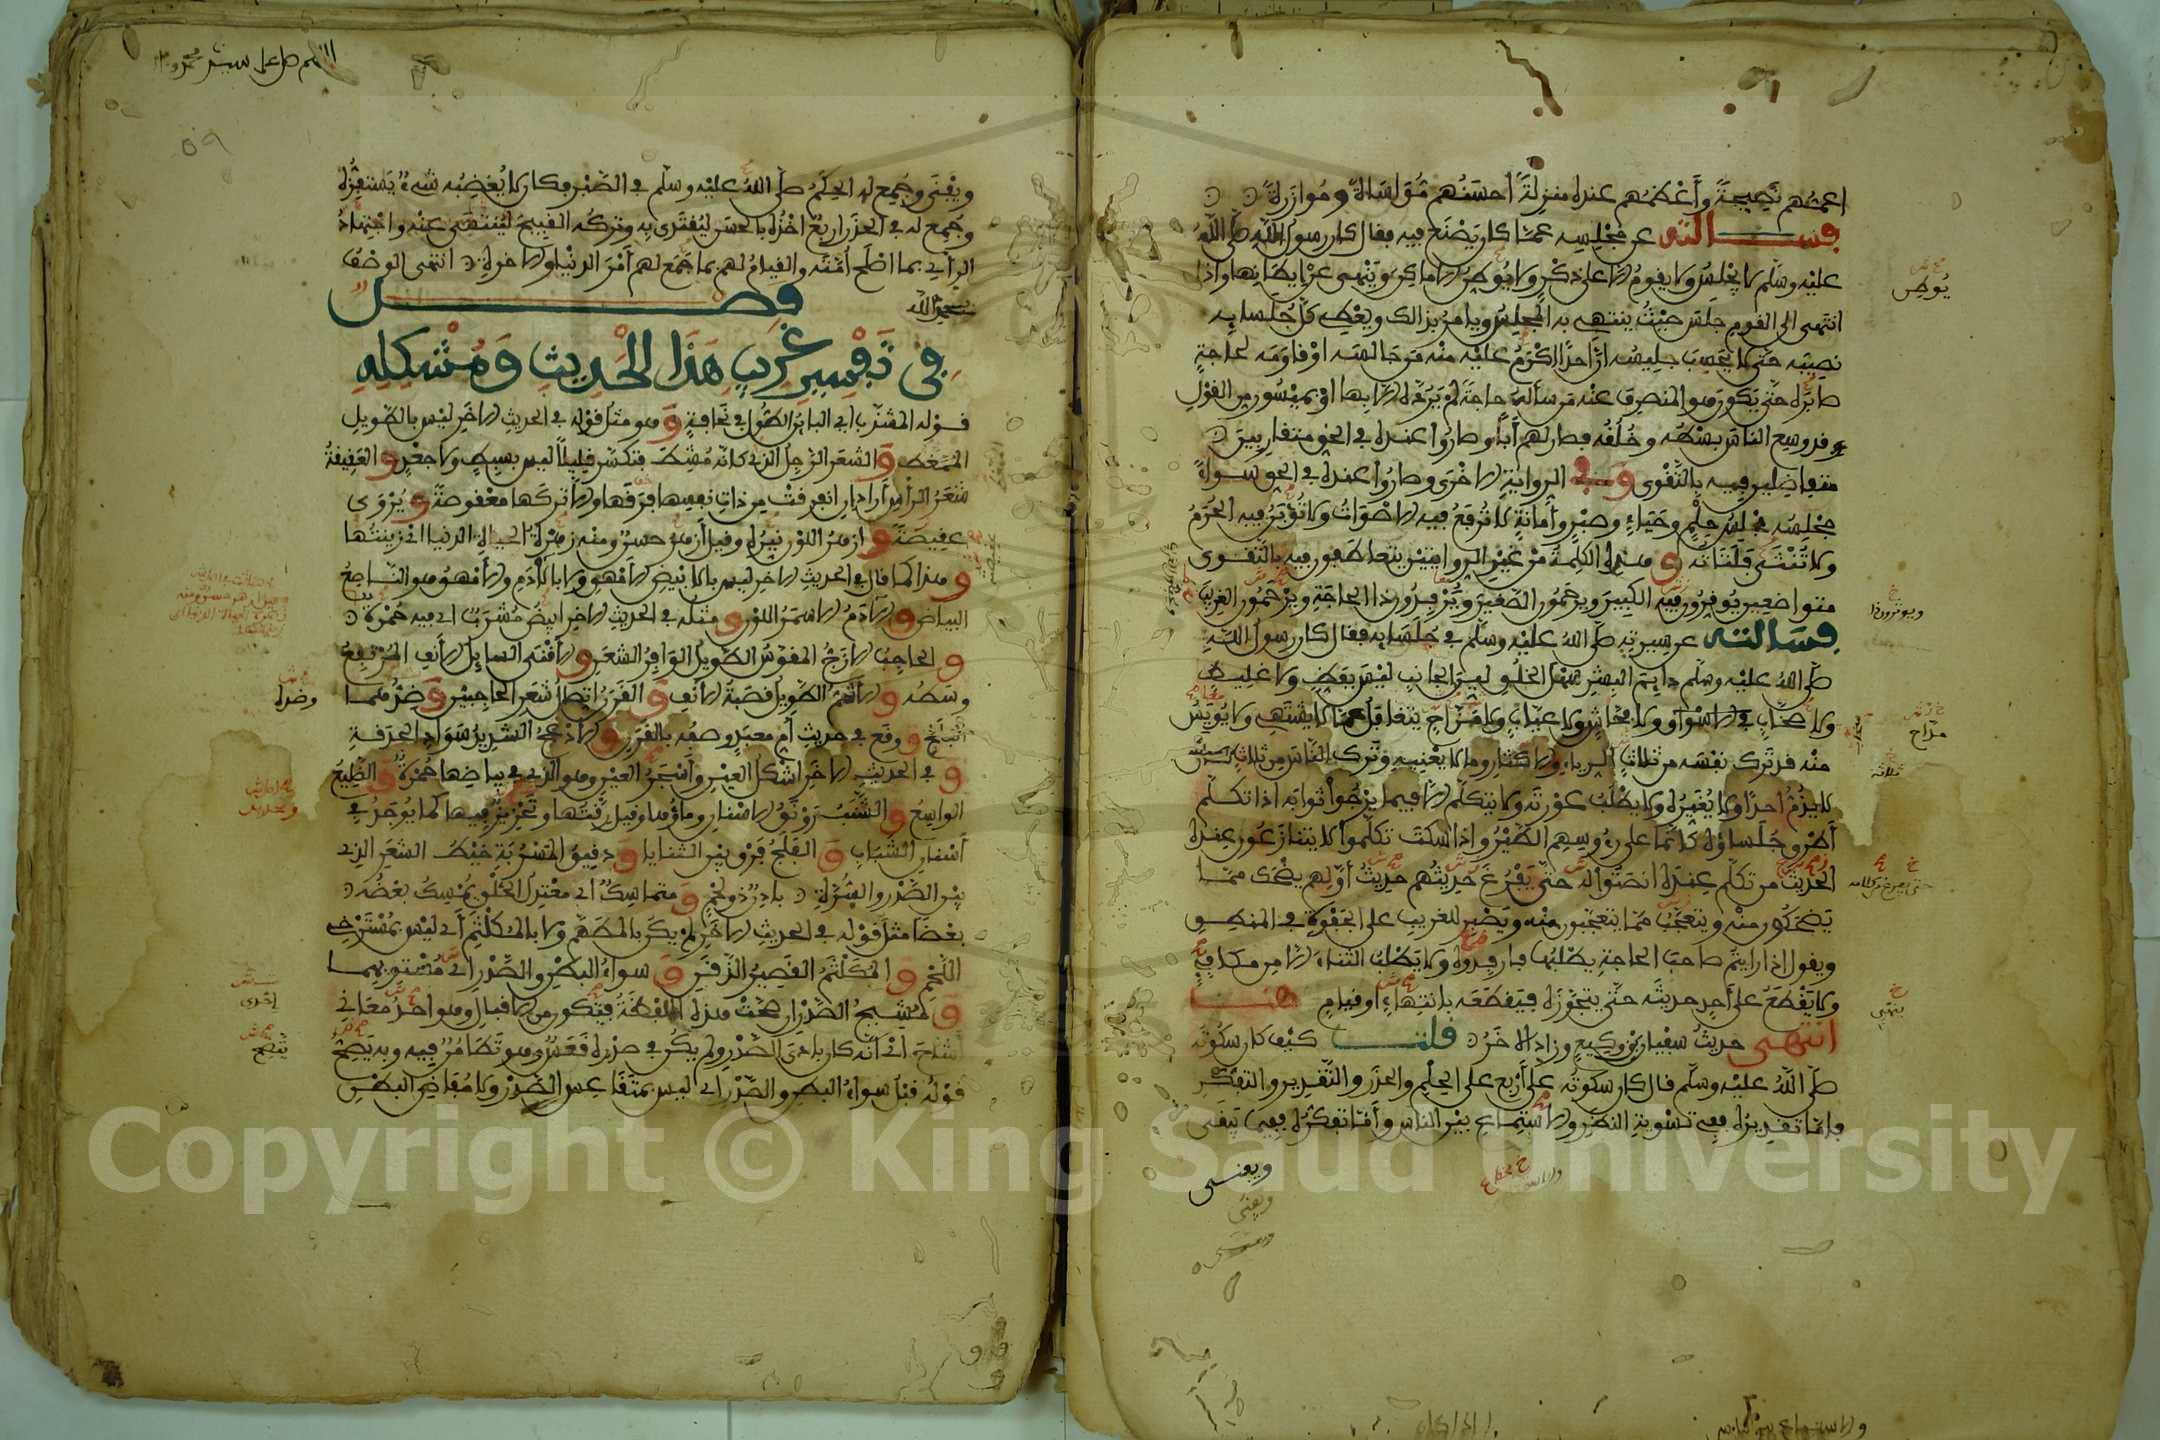 اعمهم نصيحة وأعظمهم عنده منزلة أحسنهم مواساة وموازرة
فسألته عن مجلسه عما كان يصنع فيه فقال كان رسول الله صلى الله
عليه وسلم لا يجلس ولا يقوم إلا على ذكر ولا يوطن الاماكن وينهى عن إيطانها وإذا
انتهى الى القوم جلس حيث ينتهي به المجلس ويامر بذالك ويعطي كل جلسايه
نصيبه حتى لا يحسب جليسه ان أحدا اكرم عليه منه من جالسه او قاومه لحاجة
صابره حتى يكون هو المنصرف عنه من سأله حاجة لم يرده الا بها او بميسور من القول
قد وسع الناس بسطه وخلقه فصار لهم أبا وصاروا عنده في الحق متقاربين
متفاضلين فيه بالتقوى وفي الرواية الاخرى وصاروا عنده في الحق سواء
مجلسه مجلس حلم وحياء وصبر وأمانة لا ترفع فيه الاصوات ولا تؤبن فيه الحرم
ولا تنثى فلتاته وهذه الكلمة من غير الروايتين يتعاطفون فيه بالتقوى
متواضعين يوقرون فيه الكبير ويرحمون الصغير ويرفدون ذا الحاجة ويرحمون الغريب
فسألته عن سيرته صلى الله عليه وسلم في جلسايه فقال كان رسول الله
صلى الله عليه وسلم دايم البشر سهل الخلق لين الجانب ليس بفظ ولا غليظ
ولا سخاب في الاسواق ولا فحاش ولا عياب ولا مزاح يتغافل عما لا يشتهي ولا يويس
منه قد ترك نفسه من ثلاث الرياء والاكثار وما لا يعنيه وترك الناس من ثلاث
لا يذم أحدا ولا يعيره ولا يطلب عورته ولا يتكلم الا فيما يرجوا ثوابه اذا تكلم
أطرق جلساؤه كأنما على رءوسهم الطير واذا سكت تكلموا لا يتنازعون عنده
الحديث من تكلم عنده انصتوا له حتى يفرغ حديثهم حديث أولهم يضحك مما
يضحكون منه ويتعجب مما يتعجبون منه ويصبر للغريب على الجفوة في المنطق
ويقول اذا رايتم صاحب الحاجة يطلبها فارفدوه ولا يطلب الثناء الا من مكافي
ولا يقطع على أحد حديثه حتى يتجوزه فيقطعه بانتهاء او قيام هنا
انتهى حديث سفيان بن وكيع وزاد الاخر قلت كيف كان سكوته
صلى الله عليه وسلم قال كان سكوته على أربع على الحلم والحذر والتقدير والتفكر
فاما تقديره ففي تسوية النظر والاستماع بين الناس وأما تفكره ففيما يبقى
ويفنى
يوطن
مزاح
ثلاثة
اللهم صل على سيدنا محمد
٥٩
ويفنى وجمع له الحلم صلى الله عليه وسلم في الصبر فكان لا يغضبه شيء يستفزه
وجمع له في الحذر اربع اخذه بالحسن ليقتدى به وتركه القبيح لينتهى عنه واجتهاد
الرأي بما اصلح أمته والقيام لهم بما جمع لهم أمر الدنيا والاخرة انتهى الوصف
بحمد الله
فصل
في تفسير غريب هذا الحديث ومشكله
قوله المشذب اي البائن الطول في نحافة وهو مثل قوله في الحديث الاخر ليس بالطويل
الممغط والشعر الرجل الذي كانه مشط فتكسر قليلا ليس بسبط ولا جعد والعقيقة
شعر الرأس أراد ان انفرقت من ذات نفسها فرقها والا تركها معقوصة ويروى
عقيصته وازهر اللون نيره وقيل أزهر حسن ومنه زهرة الحياة الدنيا اي زينتها
وهذا كما قال في الحديث الاخر ليس بالابيض الامهق ولا بالآدم والامهق هو الناصع
البياض والآدم الاسمر اللون ومثله في الحديث الاخر ابيض مشرب اي فيه حمرة
والحاجب الازج المقوس الطويل الوافر الشعر والأقنى السايل الأنف المرتفع
وسطه والأشم الطويل قصبة الأنف والقرن اتصال شعر الحاجبين وضدهما
البلج ووقع في حديث أم معبد وصفه بالقرن والأدعج الشديد سواد الحدقة
وفي الحديث الاخر اشكل العين وأسجر العين وهو الذي في بياضها حمرة والضليع
الواسع والشنب رونق الاسنان وماؤها وقيل رقتها وتحزيز فيها كما يوجد في
أسنان الشباب والفلج فرق بين الثنايا ودقيق المسربة خيط الشعر الذي
بين الصدر والسرة بادن ذو لحم ومتماسك اي معتدل الخلق يمسك بعضه
بعضا مثل قوله في الحديث الاخر لم يكن بالمطهم ولا بالمكلثم أي ليس بمسترخي
اللحم والمكلثم القصير الذقن وسواء البطن والصدر اي مستويهما
ومشيح الصدر ان صحت هذه اللفظة فتكون من الاقبال وهو احد معاني
اشاح اي انه كان بادي الصدر ولم يكن في صدره قعس وهو تطامن فيه وبه يتضح
قوله قبل سواء البطن والصدر اي ليس بمتقاعس الصدر ولا مفاض البطن
وضده
اخرى
يتضح
Copyright © King Saud University